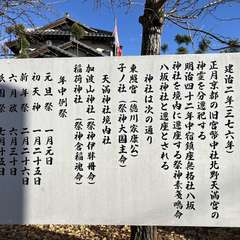 建治二年(一二七六年)
正月京都の旧官幣中社北野天満宮の
神霊を分遷祀する
明治四十二年中宿鎮座無格社八坂
神社を境内に遷座する祭神素戔嗚命
八坂神社と遷座とされる
神社は次の通り
東照宮(徳川家康公)
子ノ社(祭神大国主命)
天満神社境内社
加波山神社(祭神伊弉冊命)
稲荷神社(祭神倉稲魂命)
年中例祭
元旦祭 一月元日
初天神 一月二十五日
新年祭 二月二十六日